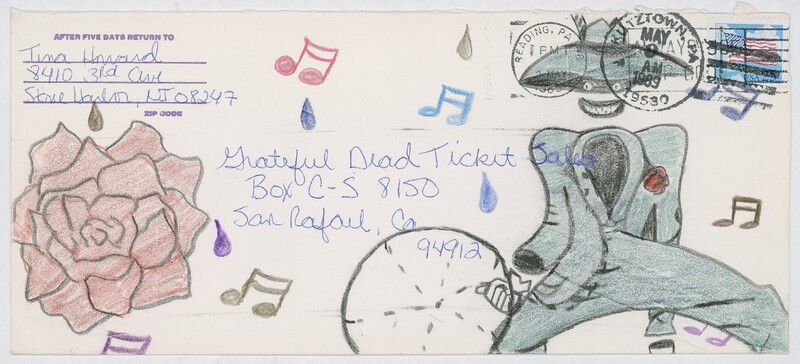 AFTER FIVE DAYS RETURN TO
Tina Howard
8410 3rd Ave
Stone Harbor, NJ 08247
ZIP CODE
READING, PA
PM
KUTZTOWN, PA
MAY
AM
1989
19530
Grateful Dead Ticket Sales
Box C-S 8150
San Rafael, Ca
94912